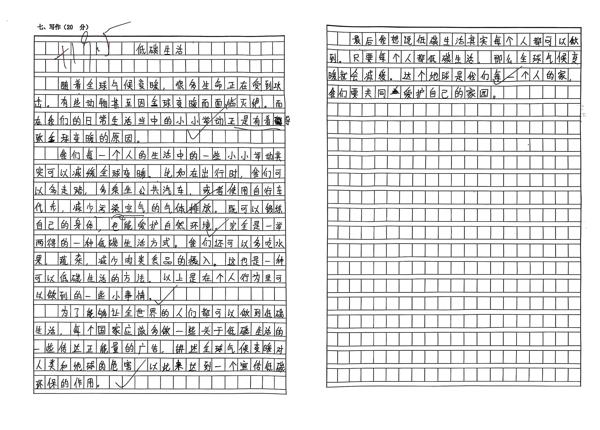 七、写作(20 分)
低碳生活
随着全球气候变暖，很多生命正在受到攻
击。有些动物甚至因全球变暖而面临灭绝。而
在我们的日常生活当中的小小举动正是有着导
致全球变暖的原因。
我们每一个人的生活中的一些小小举动其
实可以减缓全球变暖。比如在出行时，我们可
以多走路，多乘坐公共汽车，或者使用自行车
代步，减少污染空气的气体排放。既可以锻练
自己的身体，也能爱护自然环境，完全是一举
两得的一种低碳生活方式。我们还可以多吃水
果、蔬菜，减少肉类食品的摄入。这也是一种
可以低碳生活的方法。以上是在个人行为里可
以做到的一些小事情。
为了能够让全世界的人们都可以做到低碳
生活，每个国家应该多做一些关于低碳生活的
一些传达正能量的广告，讲述全球气候变暖对
人类和地球的危害，以此来达到一个宣传低碳
环保的作用。
最后我想说低碳生活其实每个人都可以做
到。只要每个人都低碳生活，那么全球气候变
暖就会减缓。这个地球是我们每一个人的家，
我们要共同爱护自己的家园。